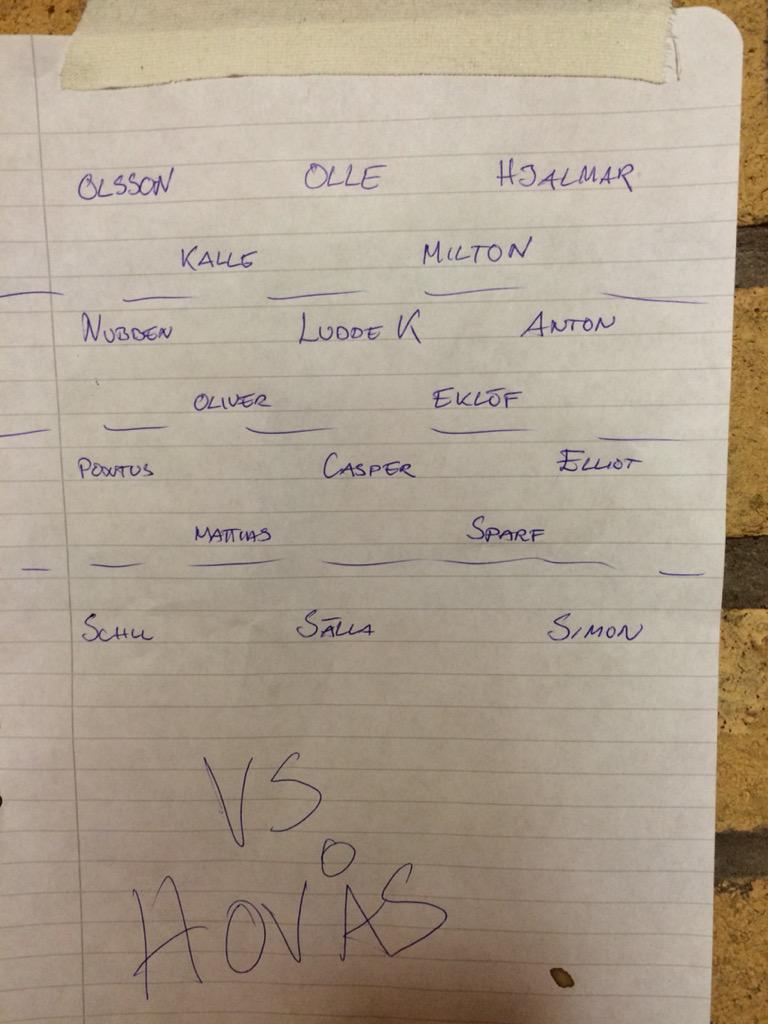 OLSSON OLLE HJALMAR
KALLE MILTON
NUBBEN LUDDE K ANTON
OLIVER EKLÖF
PONTUS CASPER ELLIOT
MATTIAS SPARF
SCHU SÄLLA SIMON
VS
HOVÅS